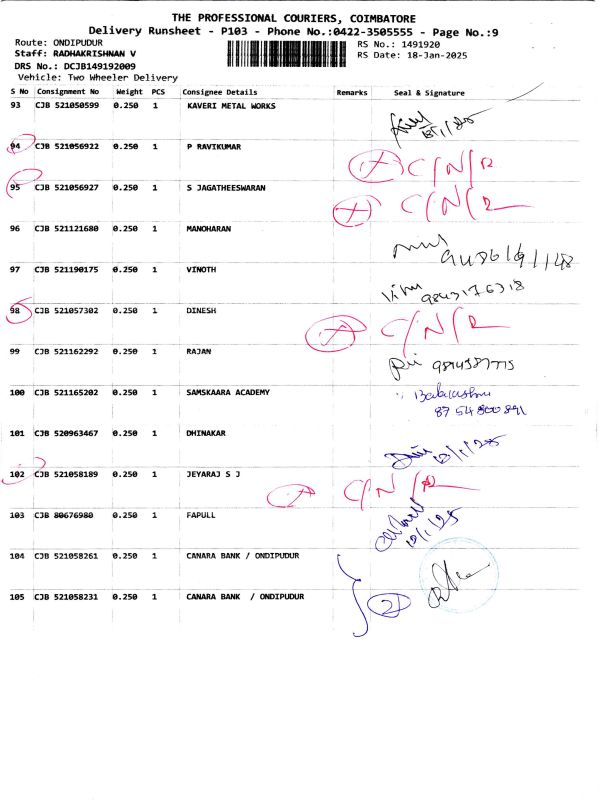 THE PROFESSIONAL COURIERS, COIMBATORE
Delivery Runsheet - P103 - Phone No.:0422-3505555 - Page No.:9
Route: ONDIPUDUR RS No.: 1491920
Staff: RADHAKRISHNAN V RS Date: 18-Jan-2025
DRS No.: DCJB149192009
Vehicle: Two Wheeler Delivery
S No Consignment No Weight PCS Consignee Details Remarks Seal & Signature
93 CJB 521050599 0.250 1 KAVERI METAL WORKS
94 CJB 521056922 0.250 1 P RAVIKUMAR C/N/R
95 CJB 521056927 0.250 1 S JAGATHEESWARAN C/N/R
96 CJB 521121680 0.250 1 MANOHARAN
97 CJB 521190175 0.250 1 VINOTH
98 CJB 521057302 0.250 1 DINESH C/N/R
99 CJB 521162292 0.250 1 RAJAN
100 CJB 521165202 0.250 1 SAMSKAARA ACADEMY
101 CJB 520963467 0.250 1 DHINAKAR
102 CJB 521058189 0.250 1 JEYARAJ S J C/N/R
103 CJB 80676980 0.250 1 FAPULL
104 CJB 521058261 0.250 1 CANARA BANK / ONDIPUDUR
105 CJB 521058231 0.250 1 CANARA BANK / ONDIPUDUR 2